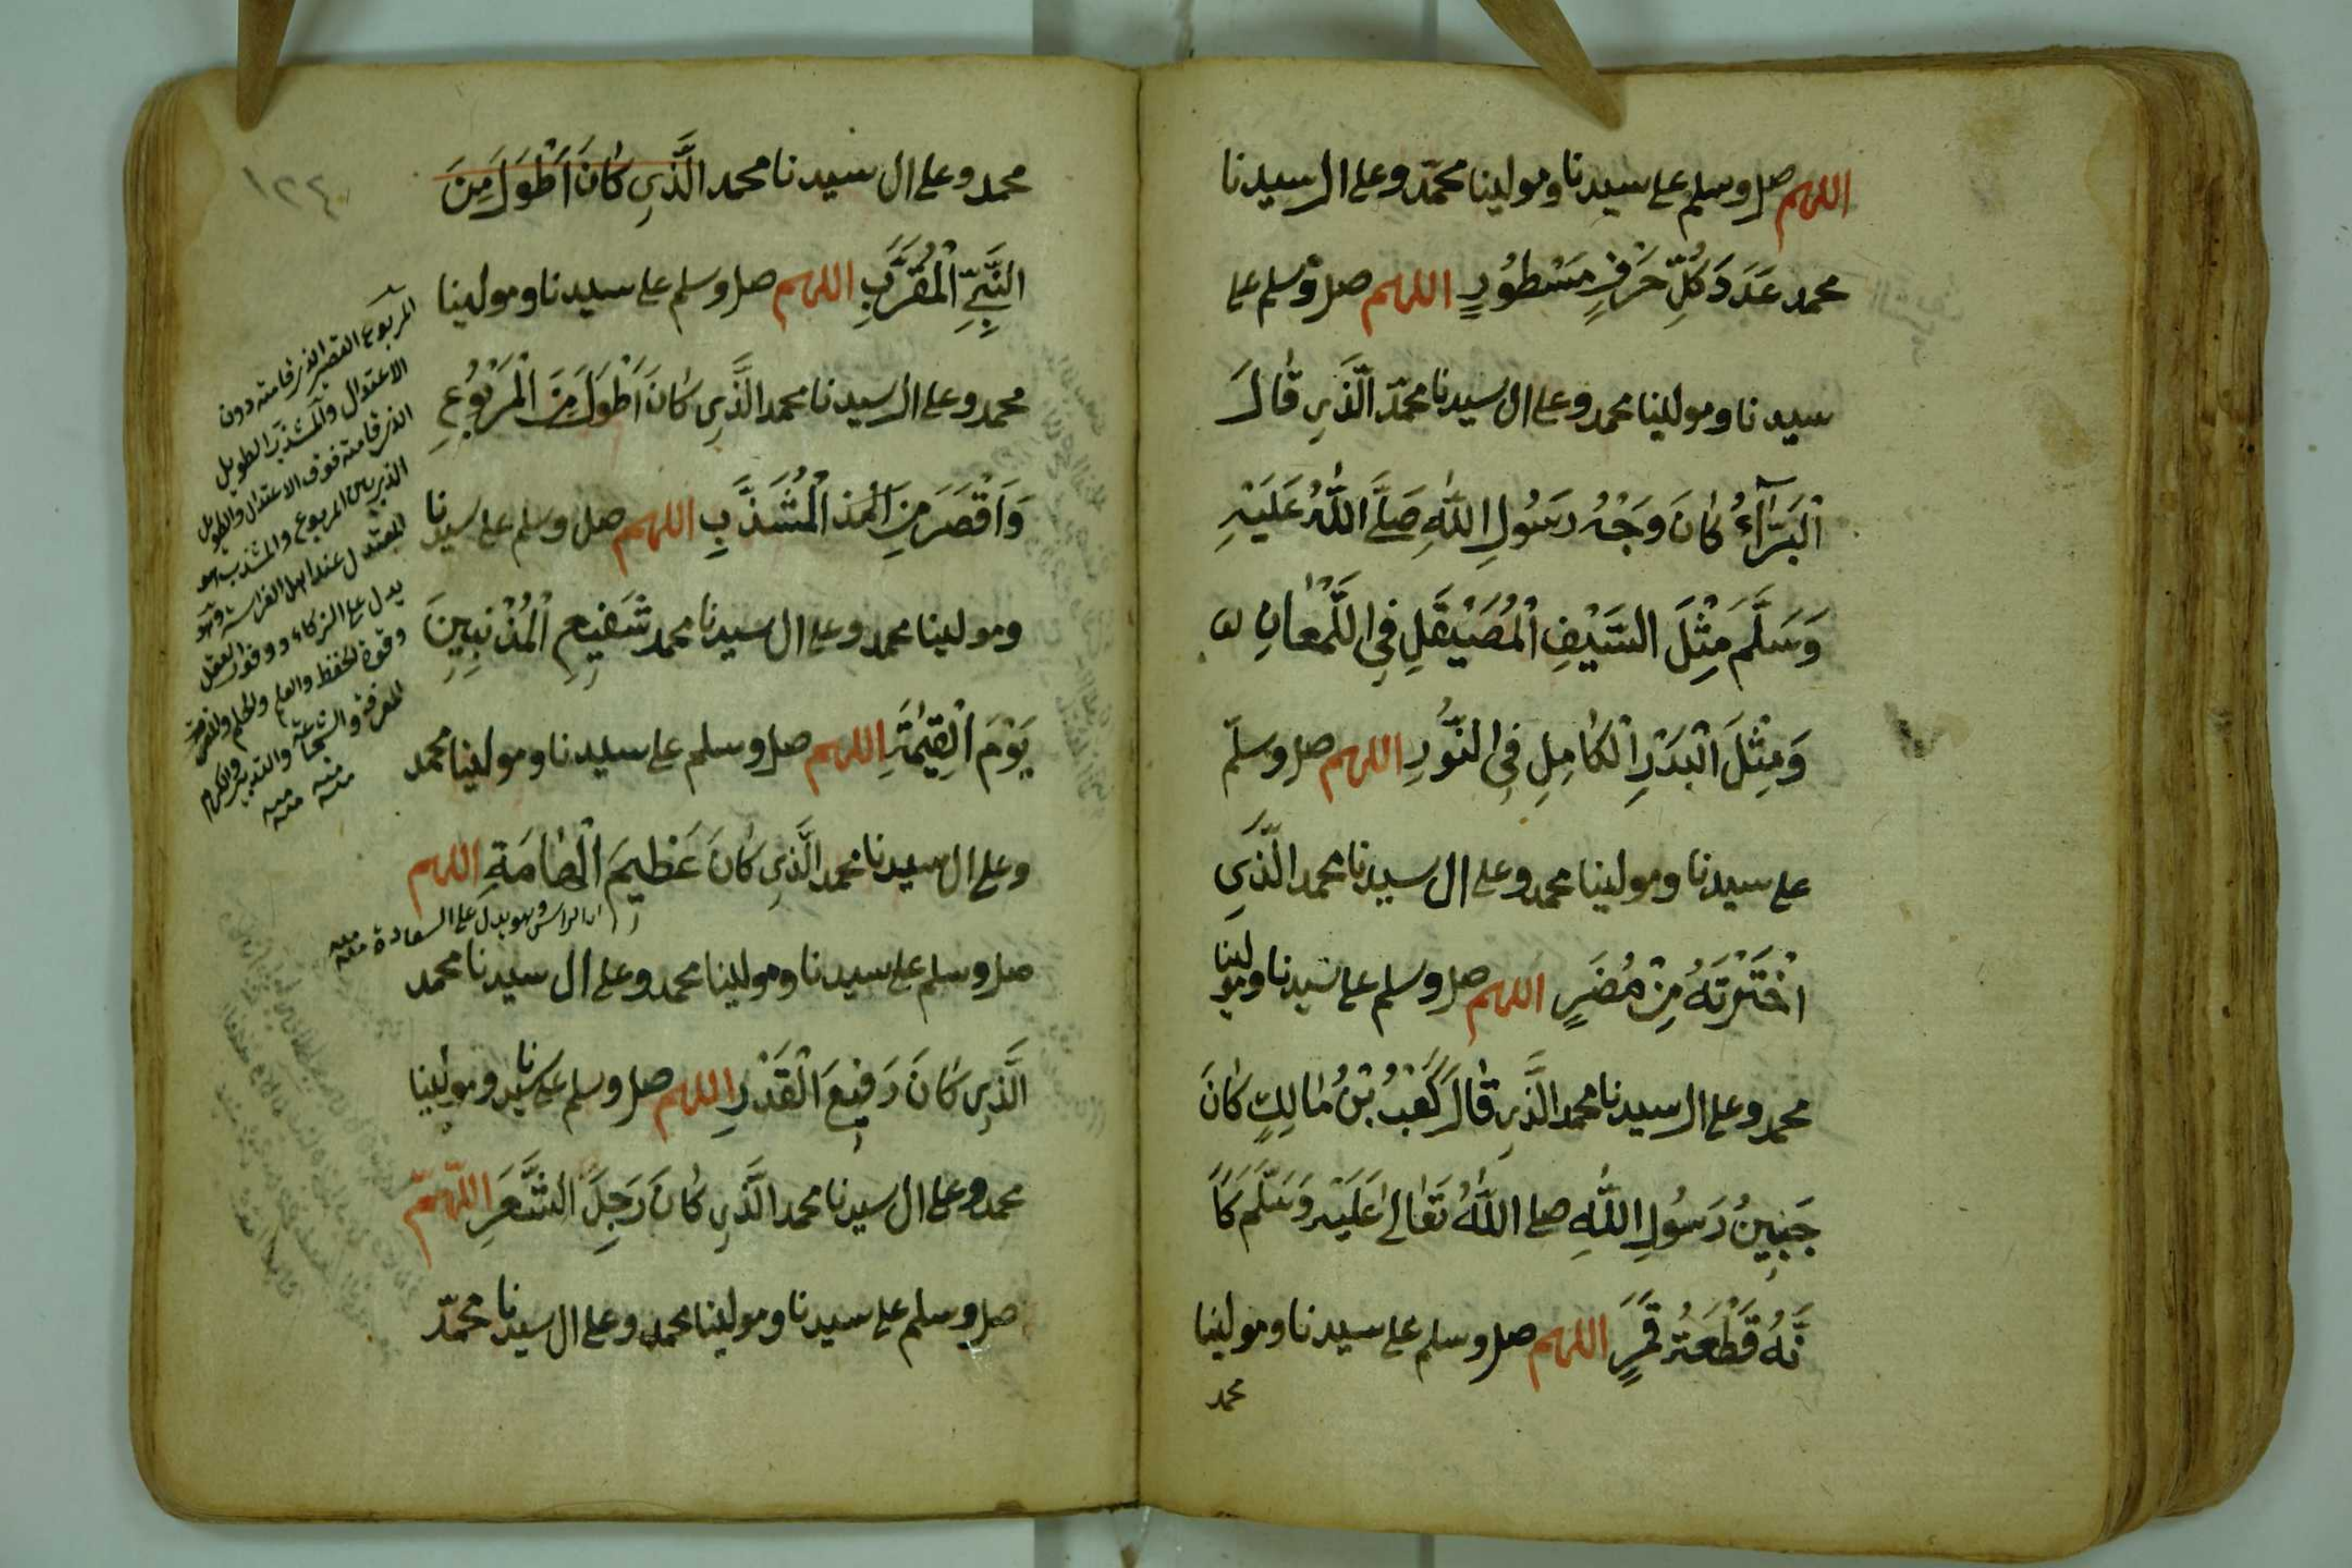 اللهم صل وسلم على سيدنا ومولينا محمّد وعلى ال سيدنا
محمد عَدَدَ كُلِّ حَرْفٍ مَسْطُورٍ اللهم صل وسلم على
سيدنا ومولينا محمد وعلى ال سيدنا محمّد الَّذِي قَالَ
اَلْبَرَّاءُ كَانَ وَجْهُ رَسُولِ اللّٰهِ صَلَّى اللّٰهُ عَلَيْهِ
وَسَلَّمَ مِثْلَ السَّيْفِ الْمُصَيْقَلِ فِي اللَّمْعَانِ
وَمِثْلَ الْبَدْرِ الْكَامِلِ فِي النُّورِ اللهم صل وسلّم
على سيدنا ومولينا محمد وعلى ال سيدنا محمد الَّذِي
اخْتَرْتَهُ مِنْ مُضَرٍ اللهم صل وسلم على سيدنا ومولينا
محمد وعلى ال سيدنا محمد الَّذِي قَالَ كَعْبُ بْنُ مَالِكٍ كَانَ
جَبِينُ رَسُولِ اللّٰهِ صلى اللّٰهُ تَعَالَى عَلَيْهِ وَسَلَّمَ كَاَ
نَّهُ قَطْعَةُ قَمَرٍ اللهم صل وسلم على سيدنا ومولينا
محمد
١٢٤
محمد وعلى ال سيدنا محمد الَّذِي كَانَ اَطْوَلَ مِنَ
النَّبِيِّ الْمُقَرَّبِ اللهم صل وسلم على سيدنا ومولينا
محمد وعلى ال سيدنا محمد الَّذِي كَانَ اَطْوَلَ مِنَ الْمَرْبُوعِ
وَاَقْصَرَ مِنَ الْمُشَذَّبِ اللهم صل وسلم على سيدنا
ومولينا محمد وعلى ال سيدنا محمد شَفِيعِ الْمُذْنِبِينَ
يَوْمَ الْقِيٰمَةِ اللهم صل وسلم على سيدنا ومولينا محمد
وعلى ال سيدنا محمد الَّذِي كَانَ عَظِيمَ الْهَامَةِ اللهم
الراس وهو يدل على السعادة منه
صل وسلم على سيدنا ومولينا محمد وعلى ال سيدنا محمد
الَّذِي كَانَ رَفِيعَ الْقَدْرِ اللهم صل وسلم على سيدنا ومولينا
محمد وعلى ال سيدنا محمد الَّذِي كَانَ رَجِلَ الشَّعَرِ اللّهمّ
صل وسلم على سيدنا ومولينا محمد وعلى ال سيدنا محمّد
المربوع القصير الذي قامته دون
الاعتدال والمشذب الطويل
الذي قامته فوق الاعتدال والطويل
الذي بين المربوع والمشذب هو
المعتدل عند اهل الفراسة وهو
يدل على الذكاء ووفور العقل
وقوة الحفظ والعلم والحلم
المعرفة والشجاعة والتدبير والكرم
منه